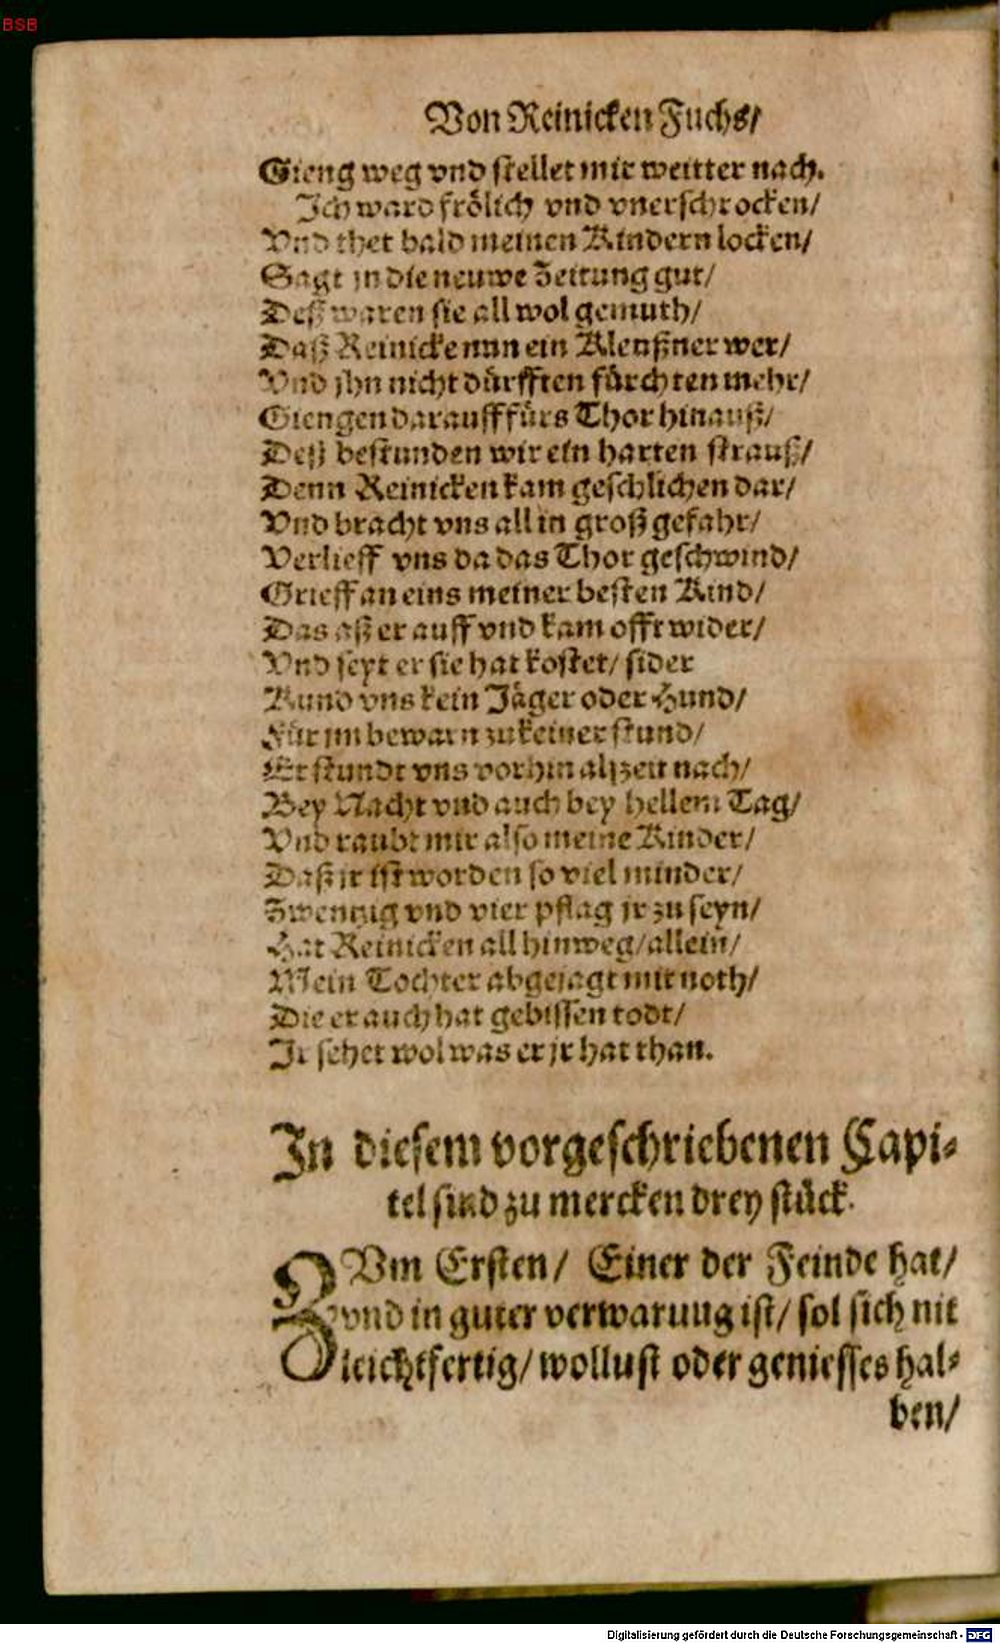 BSB
Von Reinicken Fuchs/
Gieng weg vnd stellet mir weitter nach.
Ich ward frölich vnd vnerschrocken/
Vnd thet bald meinen Kindern locken/
Sagt jn die neuwe Zeitung gut/
Deß waren sie all wol gemuth/
Daß Reinicke nun ein Kleußner wer/
Vnd jhn nicht dürfften fürchten mehr/
Giengen darauff fürs Thor hinauß/
Deß bestunden wir ein harten strauß/
Denn Reinicken kam geschlichen dar/
Vnd bracht vns all in groß gefahr/
Verlieff vns da das Thor geschwind/
Grieff an eins meiner besten Kind/
Das aß er auff vnd kam offt wider/
Vnd seyt er sie hat kostet/ sider
Kund vns kein Jäger oder Hund/
Für im bewarn zu keiner stund/
Er stundt vns vorhin alzeit nach/
Bey Nacht vnd auch bey hellem Tag/
Vnd raubt mir also meine Kinder/
Daß jr ist worden so viel minder/
Zwentzig vnd vier pflag jr zu seyn/
Hat Reinicken all hinweg/ allein/
Mein Tochter abgejagt mit noth/
Die er auch hat gebissen todt/
Ir sehet wol was er jr hat than.
In diesem vorgeschriebenen Capi-
tel sind zu mercken drey stück.
ZVm Ersten/ Einer der Feinde hat/
vnd in guter verwarung ist/ sol sich nit
leichtfertig/ wollust oder geniesses hal-
ben/
Digitalisierung gefördert durch die Deutsche Forschungsgemeinschaft - DFG